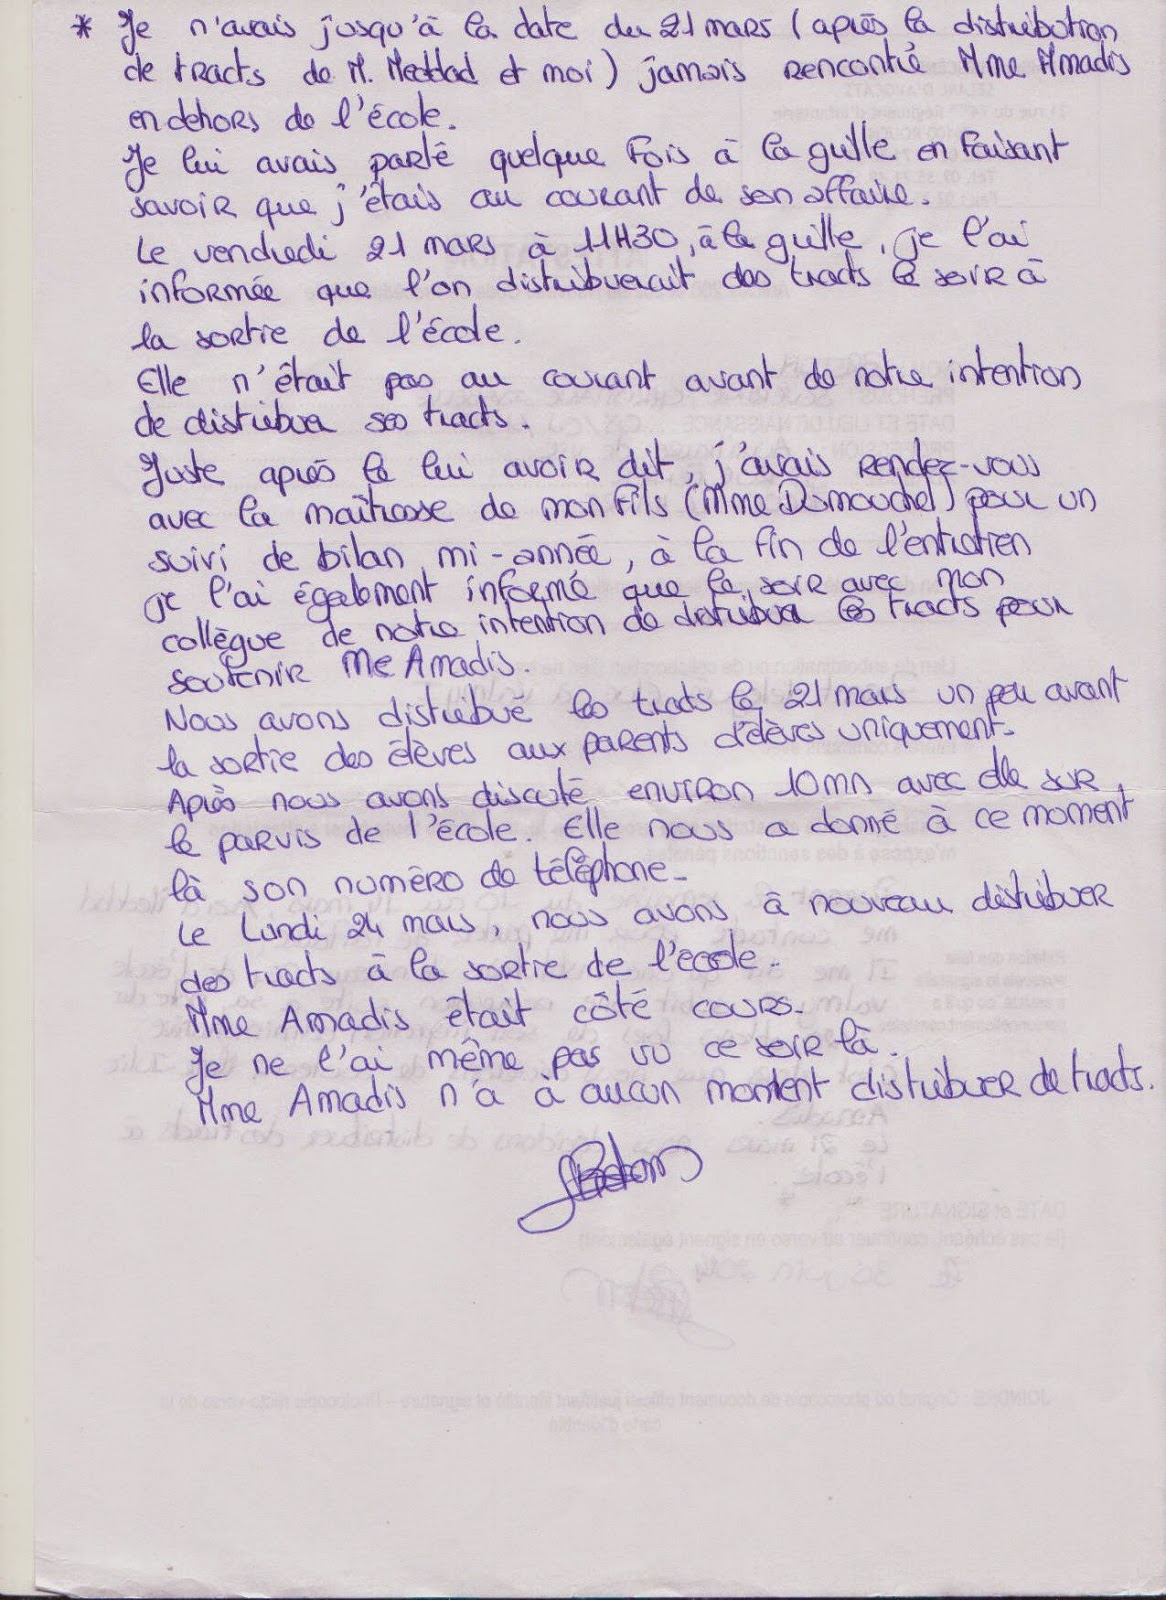 * Je n'avais jusqu'à la date du 21 mars (après la distribution
de tracts de M. Meddad et moi) jamais rencontré Mme Amadis
en dehors de l'école.
Je lui avais parlé quelque fois à la grille en faisant
savoir que j'étais au courant de son affaire.
Le vendredi 21 mars à 11H30, à la grille, je l'ai
informée que l'on distribuerait des tracts le soir à
la sortie de l'école.
Elle n'était pas au courant avant de notre intention
de distribuer ses tracts.
Juste après le lui avoir dit, j'avais rendez-vous
avec la maîtresse de mon fils (Mme Dumouchel) pour un
suivi de bilan mi-année, à la fin de l'entretien
je l'ai également informé que le soir avec mon
collègue de notre intention de distribuer les tracts pour
soutenir Me Amadis.
Nous avons distribué les tracts le 21 mars un peu avant
la sortie des élèves aux parents d'élèves uniquement.
Après nous avons discuté environ 10mn avec elle sur
le parvis de l'école. Elle nous a donné à ce moment
là son numéro de téléphone.
Le Lundi 24 mars, nous avons à nouveau distribuer
des tracts à la sortie de l'école.
Mme Amadis était côté cours.
Je ne l'ai même pas vu ce soir là.
Mme Amadis n'a à aucun moment distribuer de tracts.